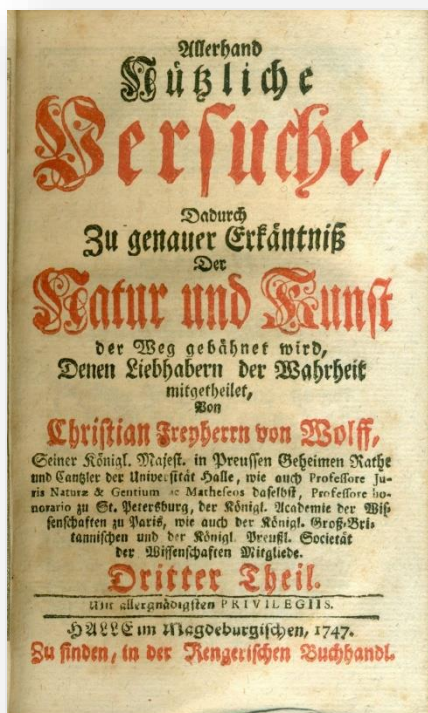 Allerhand
Nützliche
Versuche,
Dadurch
Zu genauer Erkäntniß
Der
Natur und Kunst
der Weg gebähnet wird,
Denen Liebhabern der Wahrheit
mitgetheilet,
Von
Christian Freyherrn von Wolff,
Seiner Königl. Majest. in Preussen Geheimen Rathe
und Cantzler der Universität Halle, wie auch Professore Ju-
ris Naturæ & Gentium ac Matheseos daselbst, Professore ho-
norario zu St. Petersburg, der Königl. Academie der Wis-
senschaften zu Paris, wie auch der Königl. Groß-Bri-
tannischen und der Königl. Preußl. Societät
der Wissenschaften Mitgliede.
Dritter Theil.
Mit allergnädigsten PRIVILEGIIS.
HALLE im Magdeburgischen, 1747.
Zu finden, in der Rengerischen Buchhandl.